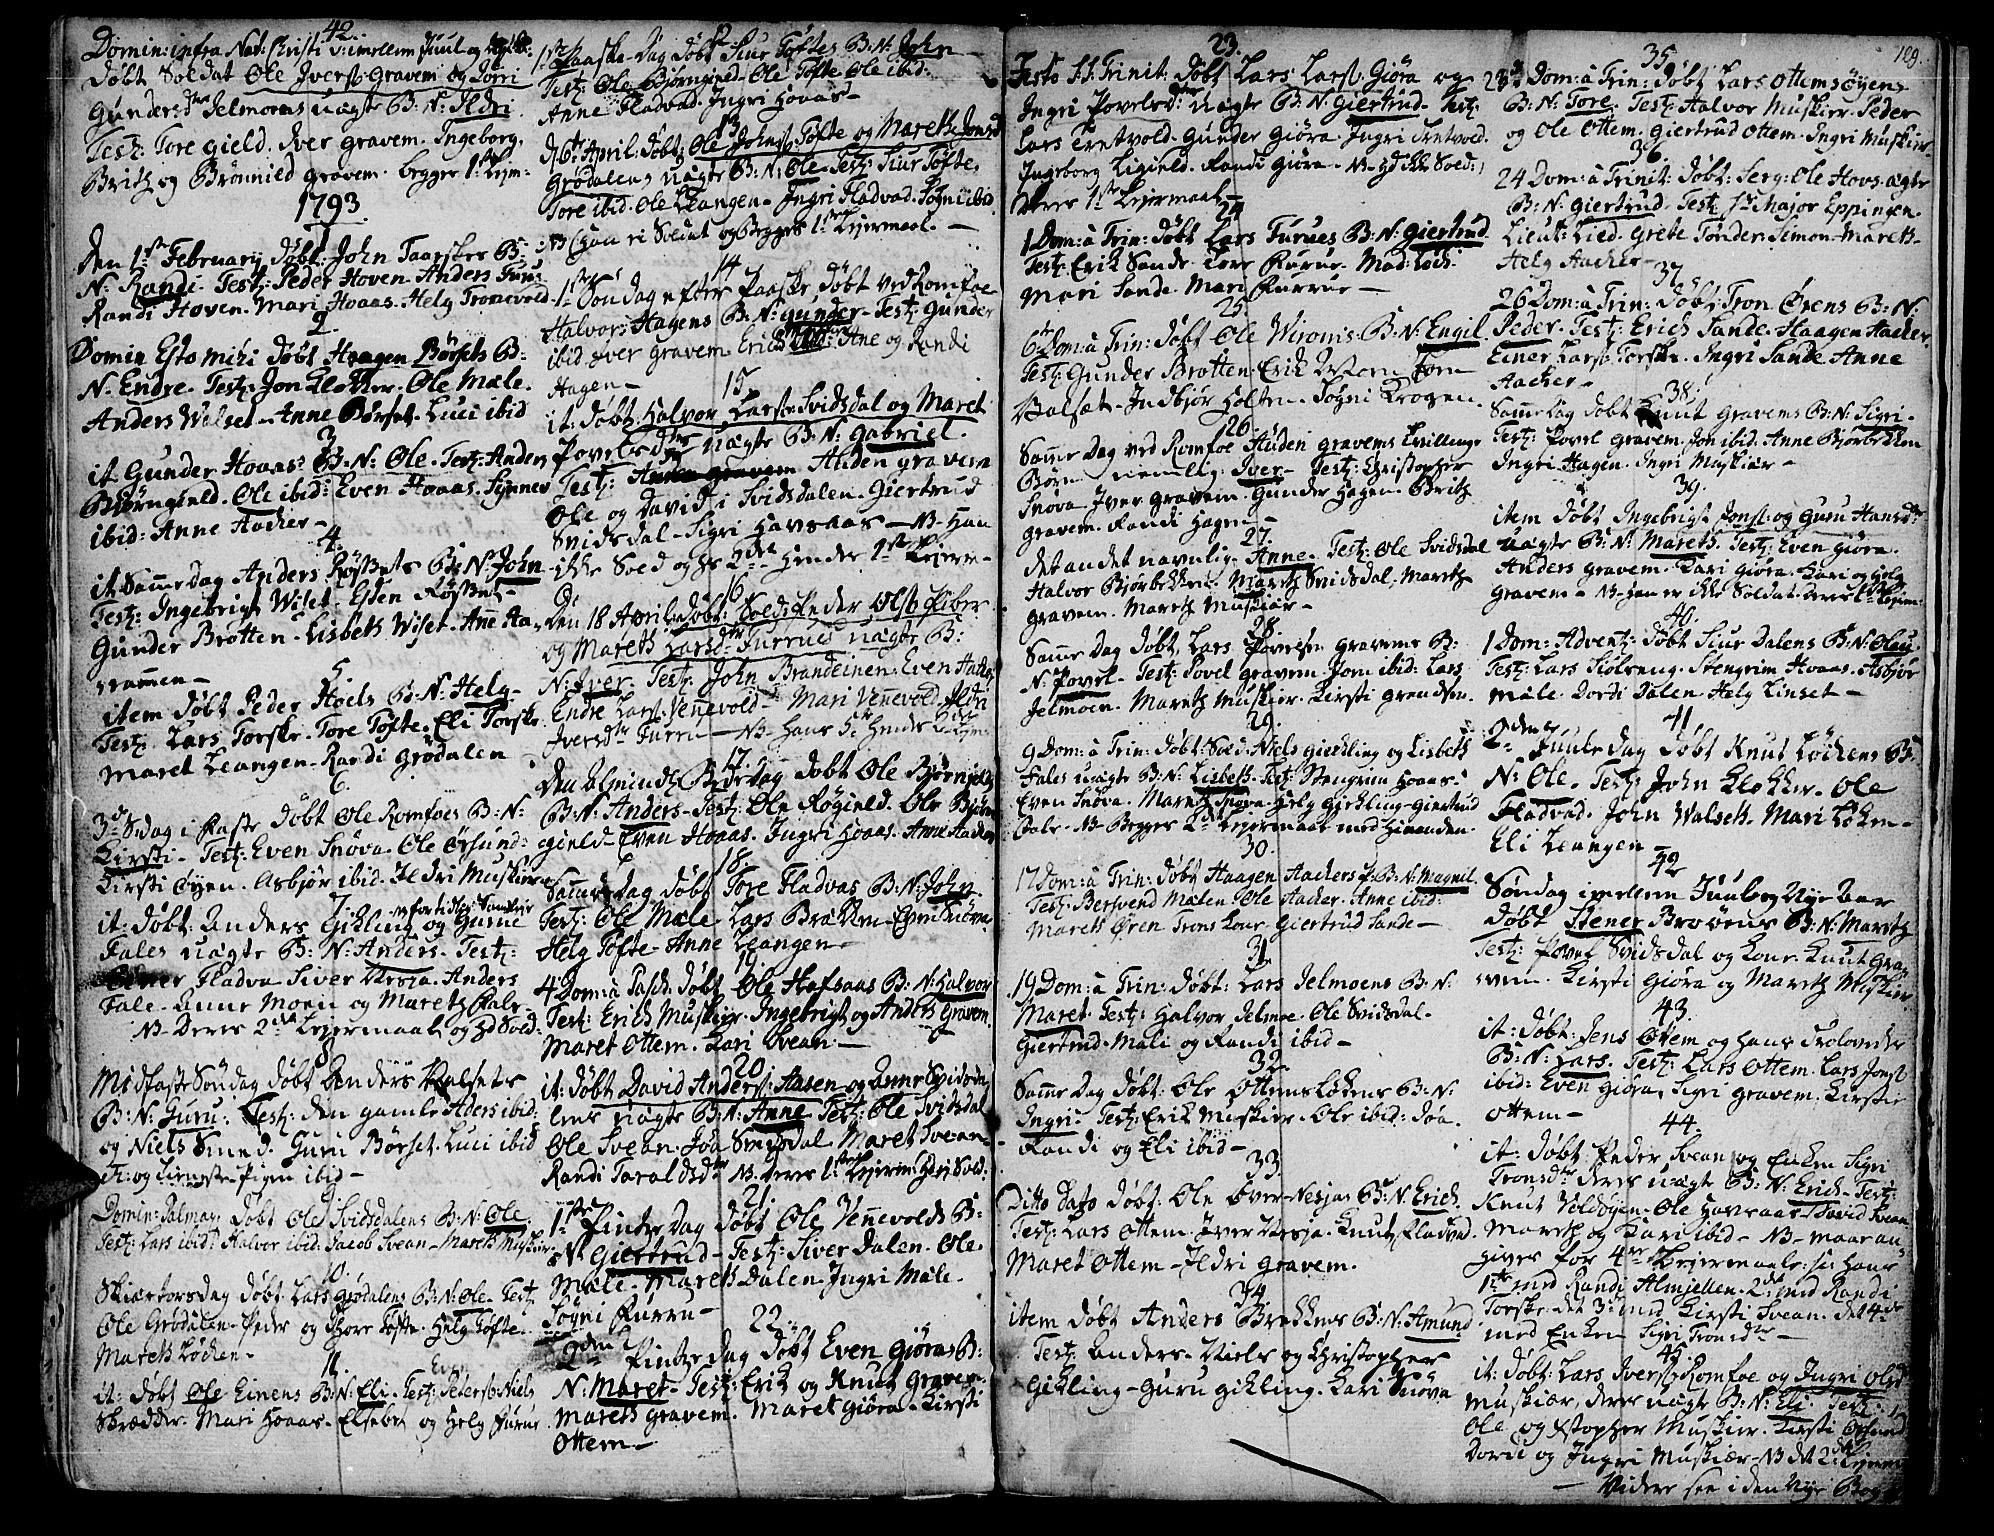 42.
Domin: infra Nat: Christi v: imellem Juul og
døbt Soldat Ole Iverss: Gravem og Jørri
Gundersdtr Jelmoens uægte B: N: Ildri
Test: Tore gield. Iver gravem. Ingeborg,
Brit og Brønnild gravem. begges 1ste Lejm:
1793.
1
den 1ste February døbt John Taarskes B:
N: Randi. Test: Peder Hoven. Anders Furu
Randi Hoven. Mari Hoaas. Helg Tronevold
2
Domin Esto mihi døbt Haagen Børsets B:
N: Endre. Test: Jon Klokker. Ole Mæle.
Anders Walset. Anne Børset. Luci ibid
3
it. Gunder Hoaas' B: N: Ole. Test: Anders
Biørngield. Ole ibid: Even Hoaas. Synnev
ibid: Anne Aacher
4
it. Samme dag Anders Røstets B: N: John
Test: Ingebrigt Wiset. Esten Røstet
Gunder Brotten. Lisbeth Wiset. Anne
5
item døbt Peder Hoels B: N: Helg.
Test: Lars Torske. Tore Tofte. Eli Torske.
Maret Leangen. Randi Grødalen
6.
3d. S:dag i Faste døbt Ole Romfoes B: N:
Kirsti. Test: Even Snøva. Ole Ørsund:
Kirsti Øyen. Asbjør ibid. Ildri Muskier
7
it: døbt: Anders Gikling og Gurue
Fales uægte B: N: Anders. Test:
Fladva Siver Nesja. Anders
Fale. Anne Moen og Mareth Fale
NB. deres 2det Lejermaal og Sold:
8
Midfaste Søndag døbt Anders Walsets
B: N: Guru. Test: den gamle Aders ibid:
og Niels Smed. Guru Børset. Luci ibid
Pigen ibid
9
Domin: Palmar: døbt Ole Svidsdalens B: N: Ole.
Test: Lars ibid: Halvor ibid: Jacob Svean. Mareth Muskier
10.
Skiertorsdag døbt Lars Grødalens B: N: Ole. Test:
Ole Grødalen. Peder og Thore Tofte. Helg Tofte.
Mareth Løcken.
11.
it: døbt Ole Einens B: N: Eli. Test: Niels
Skrædder. Mari Hoaas. Elseber og Helg Furue
12
1ste Paaske Dag døbt Siur Toftes B: N: John
Test: Ole Bjørngield. Ole Tofte Ole ibid:
Anne Fladvad. Ingri Hoaas
13
d. 6te April døbt Ole Johns: Tofte og Mareth Jonsd
Grødalens uægte B: N: Ole. Test: Siur Tofte,
Tore ibid. Ole Leangen. Ingri Fladvad. Søgni ibid
NB. (han ei Soldat og Begges 1ste Lejermaal.
14
1ste Søndag efter Paaske døbt ved Romfoe
Halvor Hagens B: N: gunder. Test: Gunder
ibid Iver gravem. Erich Ane og Randi
Hagen
15.
it: døbt Halvor Larss: Svidsdal og Maret
Povelsdtr uægte B: N: Gabriel.
Test: Auden gravem
Ole og David i Svidsdalen. Giertrud
Svidsdal. Sigri Havsaas. NB. Han
ikke Sold og hs 2det hendes 1ste Lejerm
16
Den 18 April døbt: Sold: Peder Ols: Riber
og Mareth Larsdtr Furrues uægte B:
N: Iver. Test: John Brandeinen. Even Hackes
Endre Lars: Vennevold. Mari Vennevold. Ildri
Iversdtr Furru. NB hans 3die hendes 2det Lejm:
17.
Den alminde: Bededag døbt Ole Bjørngjelds
B: N: Anders. Test: Ole Røgield. Ole Bjørn
gield. Even Hoaas. Ingri Hoaas. Anne Aacker
18.
Samme dag døbt Tore Fladvas B: N: John.
Test: Ole Mæle. Lars Bræcken. Even Snøva.
Helg Tofte. Anne Leangen
19
4 Dom: à Pasch: døbt Ole Hafsaas B: N: Halvor
Test: Erich Muskier. Ingebrigt og Anders Gravem.
Maret Ottem. Kari Svean.
20
it: døbt David Anders: Aasen og Anne Svidsda
lens uægte B: N: Anne. Test: Ole Svidsdal
Ole Svean. Joa Svidsdal. Maret Svean
Randi Taraldsdtr NB. deres 1ste Lejerm: Sold:
21.
1ste Pintse Dag døbt Ole Vennevolds B:
N: Giertrud. Test: Siver dalen. Ole
Mæle. Mareth dalen. Ingri Mæle.
Søgni Furru
22.
2den Pintse dag døbt Even Giøras B:
N: Maret. Test: Erik og Knut graven
Mareth gravem. Maret Giøra. Kirsti
Ottem
23.
Festo SS. Trinit: døbt Lars Larss: Giøra og
Ingri Povelsdtr uægte B: N: Giertrud. Test:
Lars Tretvold. Gunder Giøra. Ingri Tretvold.
Ingeborg Ligield. Randi Giøra. NB. ikke Sold:)
deres 1ste Lejermaal
24
1 Dom: à Trin: døbt Lars Furues B: N: Giertrud.
Test: Erik Sande. Lars Furue. Mad: Koch:
Mari Sande. Mari Furrue
25.
6te Dom: à Trin: døbt Ole Wiroms B: N: Engil
Test: Gunder Brotten. Erik Morn
Walset. Indbjør Holten. Søgni Krogen
26.
Samme Dag ved Romfoe Auden gravems tvillinge
Børn nemlig Iver. Test: Christopher
Snøva. Iver gravem. Gunder Hagen. Brith
gravem. Randi Hagen
27.
det andet navnlig Anne. Test: Ole Svidsdal
Halvor Bjørbekken. Mareth Svidsdal. Mareth
gravem. Mareth Muskier
28.
Samme Dag døbt Lars Povelsen gravems B:
N: Povel. Test: Povel gravem Jon ibid: Lars
Jelmoen. Mareth Muskier. Kirsti
29.
9 Dom: à Trin: døbt Sold: Niels Gickling og Lisbeth
Fales uægte B: N: Lisbeth. Test: Stengrim Hoaas.
Even Snøva. Mareth Snøva. Helg Gickling. Giertrud
Fale. NB. Begges 2det Lejermaal med hinanden.
30.
17 Dom: à Trin: døbt Haagen Aackers B: N: Magnil
Test: Berwend Mælen Ole Aacker. Anne ibid:
Mareth Øren Trons Kone Giertrud Sande
31
19 Dom: à Trin: døbt: Lars Jelmoens B: N:
Maret. Test: Halvor Jelmoe. Ole Svidsdal.
Giertrud. Mali og Randi ibid
32.
Samme Dag døbt: Ole Ottems Løkens B: N:
Ingri. Test: Erik Muskier. Ole ibid: Joa.
Randi og Eli ibid
33.
Ditto Dato døbt: Ole Over-Nesjas B: N: Erich
Test: Lars Ottem. Iver Nesja. Knut Fladvad
Maret Ottem. Ildri gravem.
34.
item døbt Anders Brækkes B: N: Amund
Test: Anders. Niels og Christopher
Gikling. Guru gikling. Kari Snøva
129.
35.
23de Dom: à Trin: døbt Lars Ottemsøyens
B: N: Tore. Test: Halvor Muskier. Peder
og Ole Ottem. Giertrud Ottem. Ingri Muskier.
36.
24 Dom: à Trinit: døbt: Serg: Ole Hovs ægte
B: N: Giertrud. Test: Hr Major Eppingen.
Lieut: Lied. Grete Tønder. Simon. Mareth
Helg Aacher
37
26 Dom: à Trin: døbt Tron Ørens B: N:
Peder. Test: Erich Sande. Haagen Aacker
Einer Larss: Torske. Ingri Sande Anne
Aacker
38.
Samme Dag døbt Knut gravens B: N: Sigri.
Test: Povel Gravem. Jon ibid. Anne Bjørbekken
Ingri Hagen. Ingri Muskier
39.
item døbt Ingebrigt Jons: og Guru Hansdtr
uægte B: N: Mareth. Test: Even Giøra.
Anders gravem. Kari Giøra. Kari og Helg
Gravem. NB. Han er ikke Soldat. deres 1ste Lejerm:
40.
1 Dom: Advent: døbt Siur Dalens B: N: Oleug
Test: Lars Stengrim Hoaas. Asbjør
Mæle. Dordi Dalen. Helg Linset
41
2den Juule dag døbt Knut Løckens B:
N: Ole. Test: John Klokker. Ole
Fladvad. John Walseth. Mari Løken
Eli Leangen
42
Søndag imellem Juul og Nye Aar
døbt Stener Broøens B: N: Mareth
Test: Povel Svidsdal og Kone. Knut Gra
vem. Kirsti Giøra og Mareth Muskier
43.
it: døbt: Jens Ottem og hans
B: N: Lars. Test: Lars Ottem. Lars Jonss:
ibid: Even Giøra, Sigri gravem. Kirsti
Ottem
44.
it: døbt Peder Svean og Enken Sigri
Tronsdtr deres uægte B: N: Erich. Test:
Knut Voldøyen. Ole Havsaas. David Svean
Mareth og Kari ibid. NB. Maar an
gives for 4de Lejermaal: sin hans
1ste med Randi Almjellen. 2det med Randi
Torske. det 3die med Kirsti Svean. det 4de
med Enken Sigri Tronsdtr
45.
it: døbt: Lars Iverss: Romfoe og Ingri Olsdtr
Muskier, deres uægte B: N: Eli. Test:
Ole og Xstopher Muskier. Kirsti Ørsund
Dordi og Ingri Muskier. NB det 2det Lejerm
Videre see i den Nye Bog